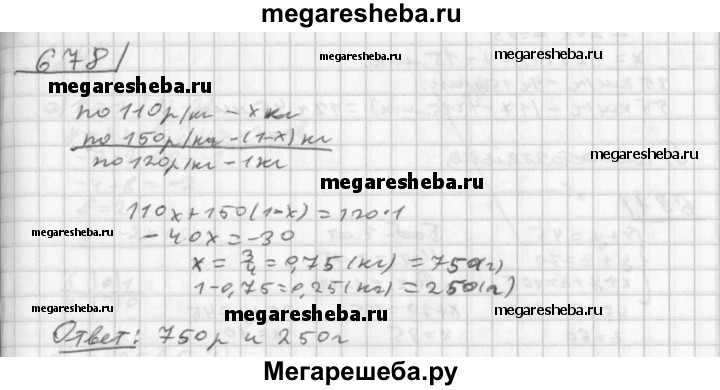 megaresheba.ru
678
megaresheba.ru
megaresheba.ru
по 110р/кг - x кг
по 150р/кг - (1-x) кг
по 120р/кг - 1кг
megaresheba.ru
110x+150(1-x)=120·1
megaresheba.ru
-40x=-30
x = 3/4 = 0,75 (кг) = 750(г)
1-0,75=0,25(кг)=250(г)
megaresheba.ru
megaresheba.ru
megaresheba.ru
Ответ: 750г и 250г
Мегарешеба.ру